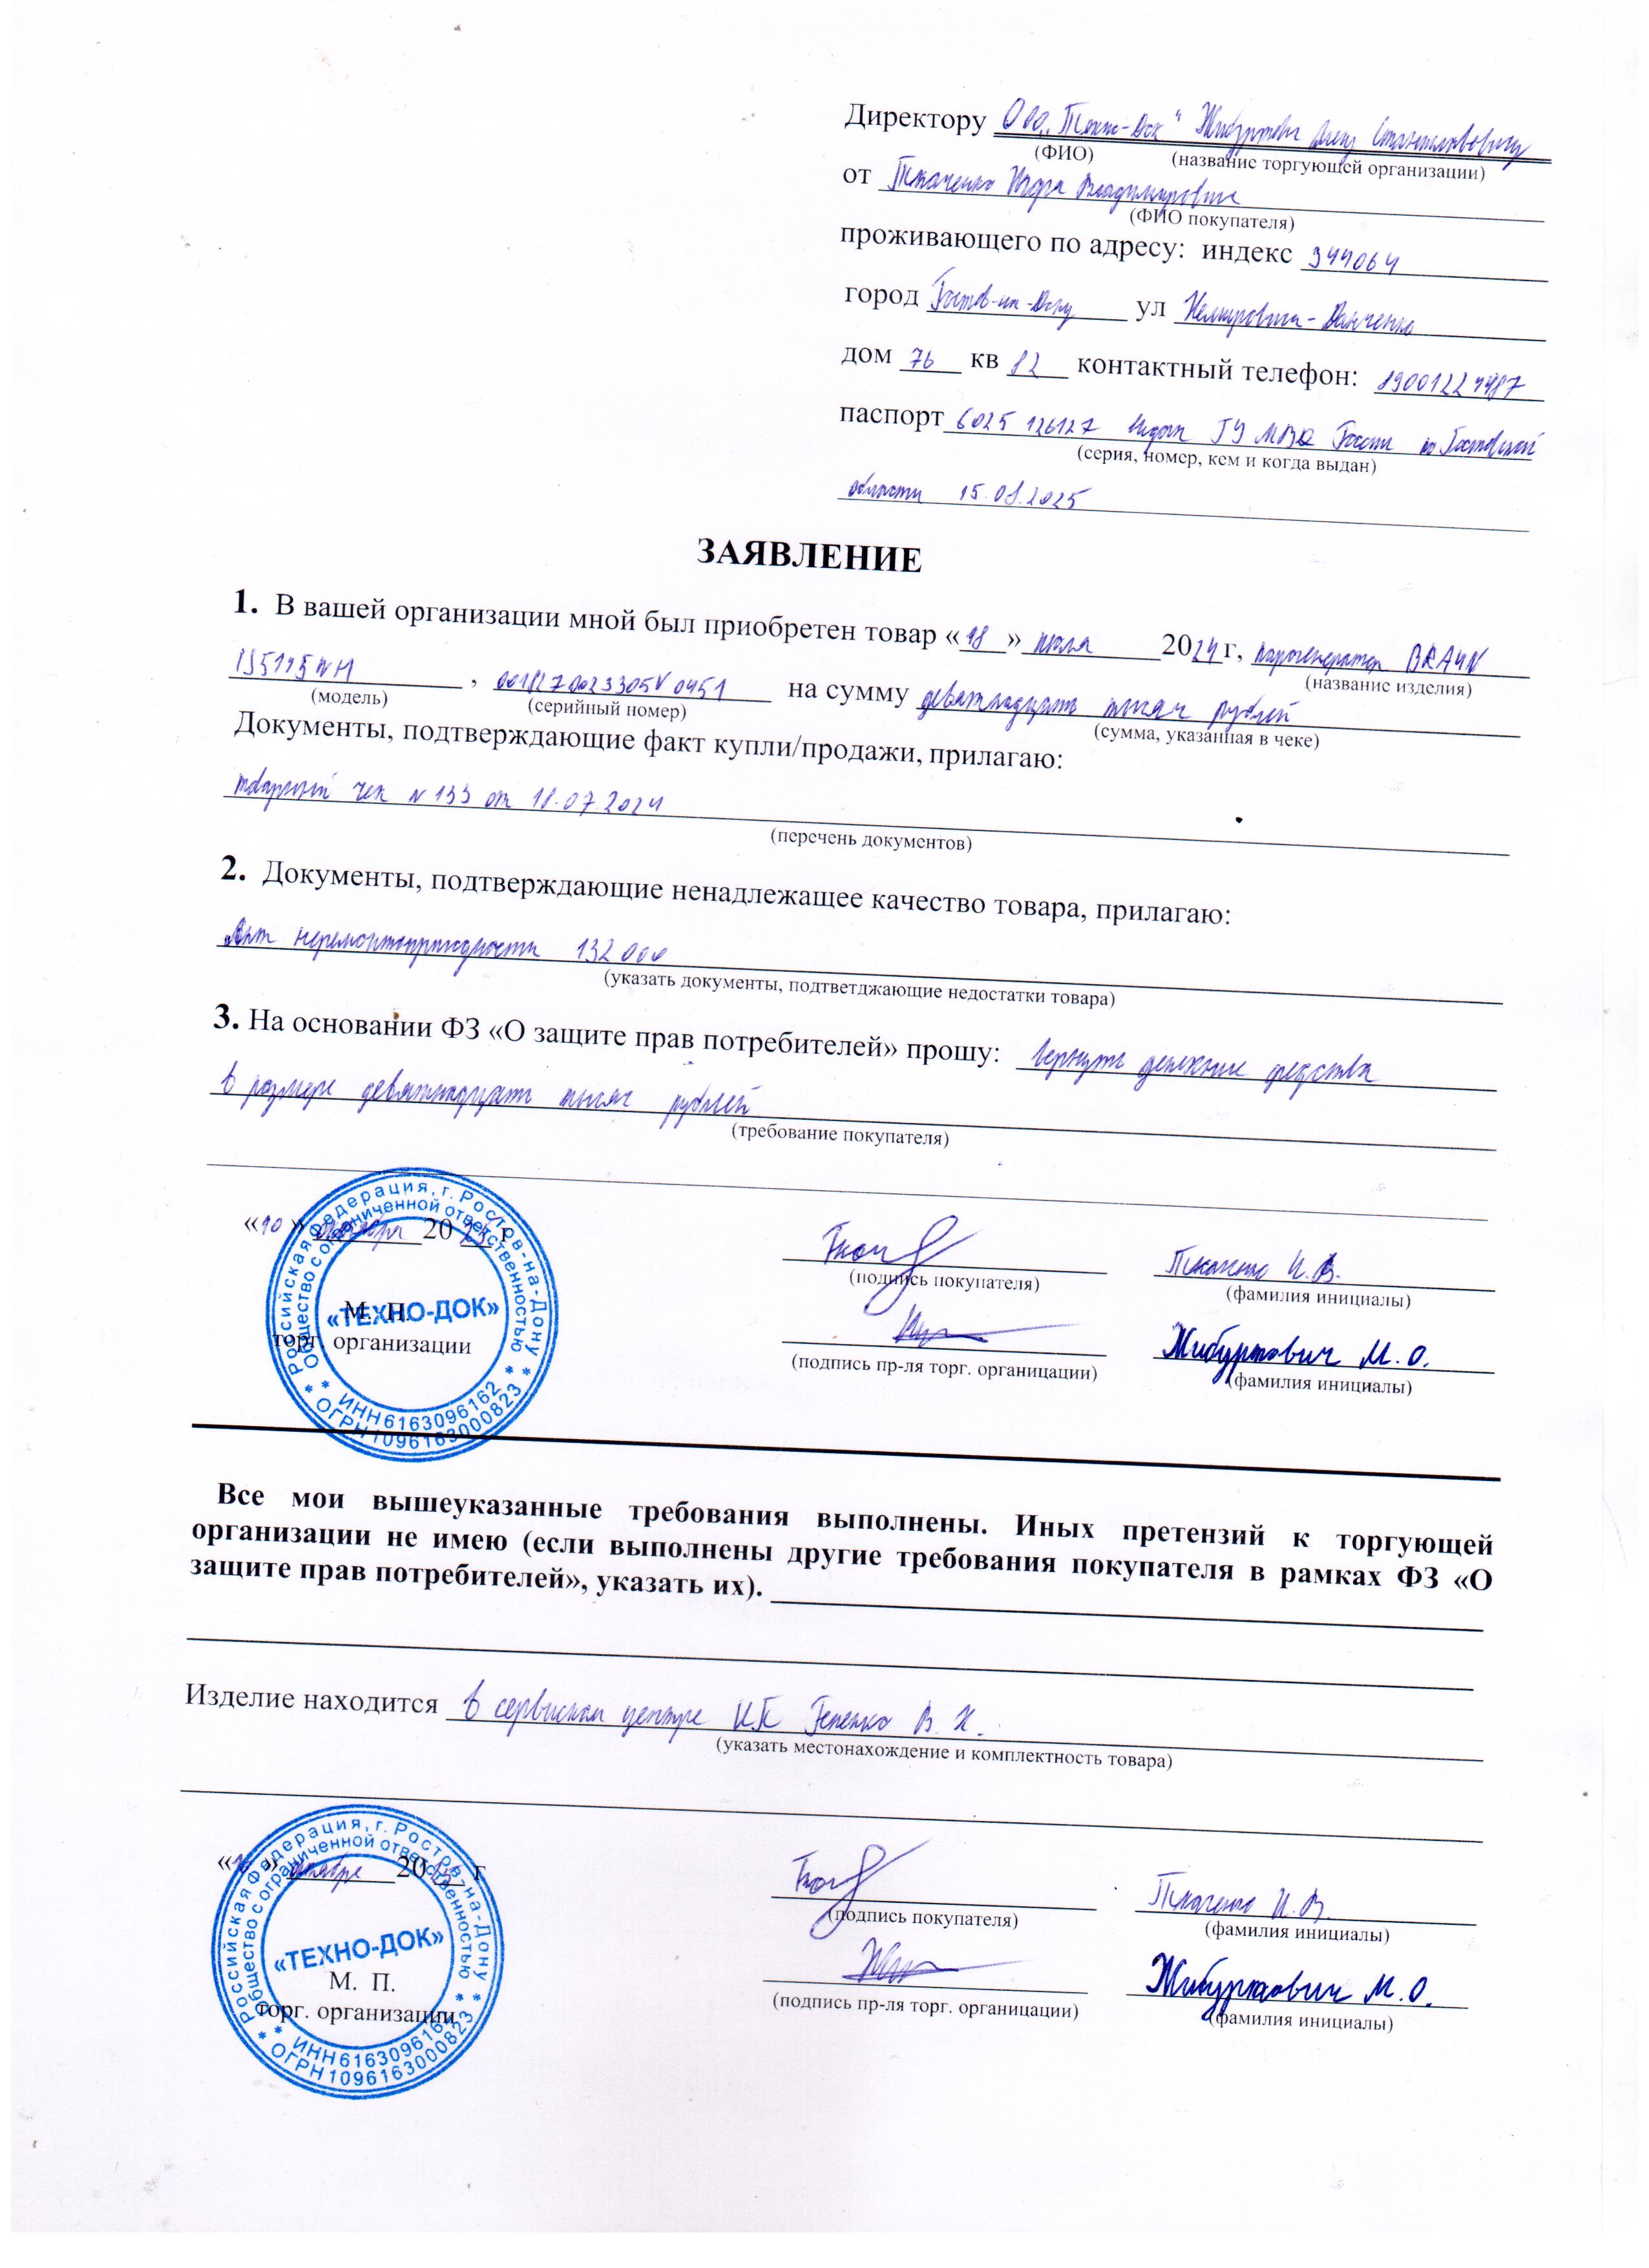 Директору ООО „Техно-Док" Жибуртович Олегу Станиславовичу
(ФИО) (название торгующей организации)
от Ткаченко Игоря Владимировича
(ФИО покупателя)
проживающего по адресу: индекс 344064
город Ростов-на-Дону ул Немировича-Данченко
дом 76 кв 82 контактный телефон:
паспорт 6025 126127 выдан ГУ МВД России по Ростовской
(серия, номер, кем и когда выдан)
области 15.08.2025
ЗАЯВЛЕНИЕ
1. В вашей организации мной был приобретен товар «18» июля 2024 г, парогенератор BRAUN
(название изделия)
IS5145WH , на сумму девятнадцать тысяч рублей
(модель) (серийный номер) (сумма, указанная в чеке)
Документы, подтверждающие факт купли/продажи, прилагаю:
товарный чек N133 от 18.07.2024
(перечень документов)
2. Документы, подтверждающие ненадлежащее качество товара, прилагаю:
Акт неремонтопригодности 132000
(указать документы, подтветджающие недостатки товара)
3. На основании ФЗ «О защите прав потребителей» прошу: вернуть денежные средства
в размере девятнадцать тысяч рублей
(требование покупателя)
«10» 20 25 г
(подпись покупателя) Ткаченко И.В. (фамилия инициалы)
М. П.
торг. организации
(подпись пр-ля торг. органицации) Жибуртович М.О. (фамилия инициалы)
Российская Федерация, г. Ростов-на-Дону * ОГРН 1096163000823 *
Общество с ограниченной ответственностью * ИНН 6163096162 *
«ТЕХНО-ДОК»
Все мои вышеуказанные требования выполнены. Иных претензий к торгующей
организации не имею (если выполнены другие требования покупателя в рамках ФЗ «О
защите прав потребителей», указать их).
Изделие находится в сервисном центре ИП Репенко В.Н.
(указать местонахождение и комплектность товара)
«10» 20 25 г
(подпись покупателя) Ткаченко И.В. (фамилия инициалы)
М. П.
торг. организации
(подпись пр-ля торг. органицации) Жибуртович М.О. (фамилия инициалы)
Российская Федерация, г. Ростов-на-Дону * ОГРН 1096163000823 *
Общество с ограниченной ответственностью * ИНН 6163096162 *
«ТЕХНО-ДОК»